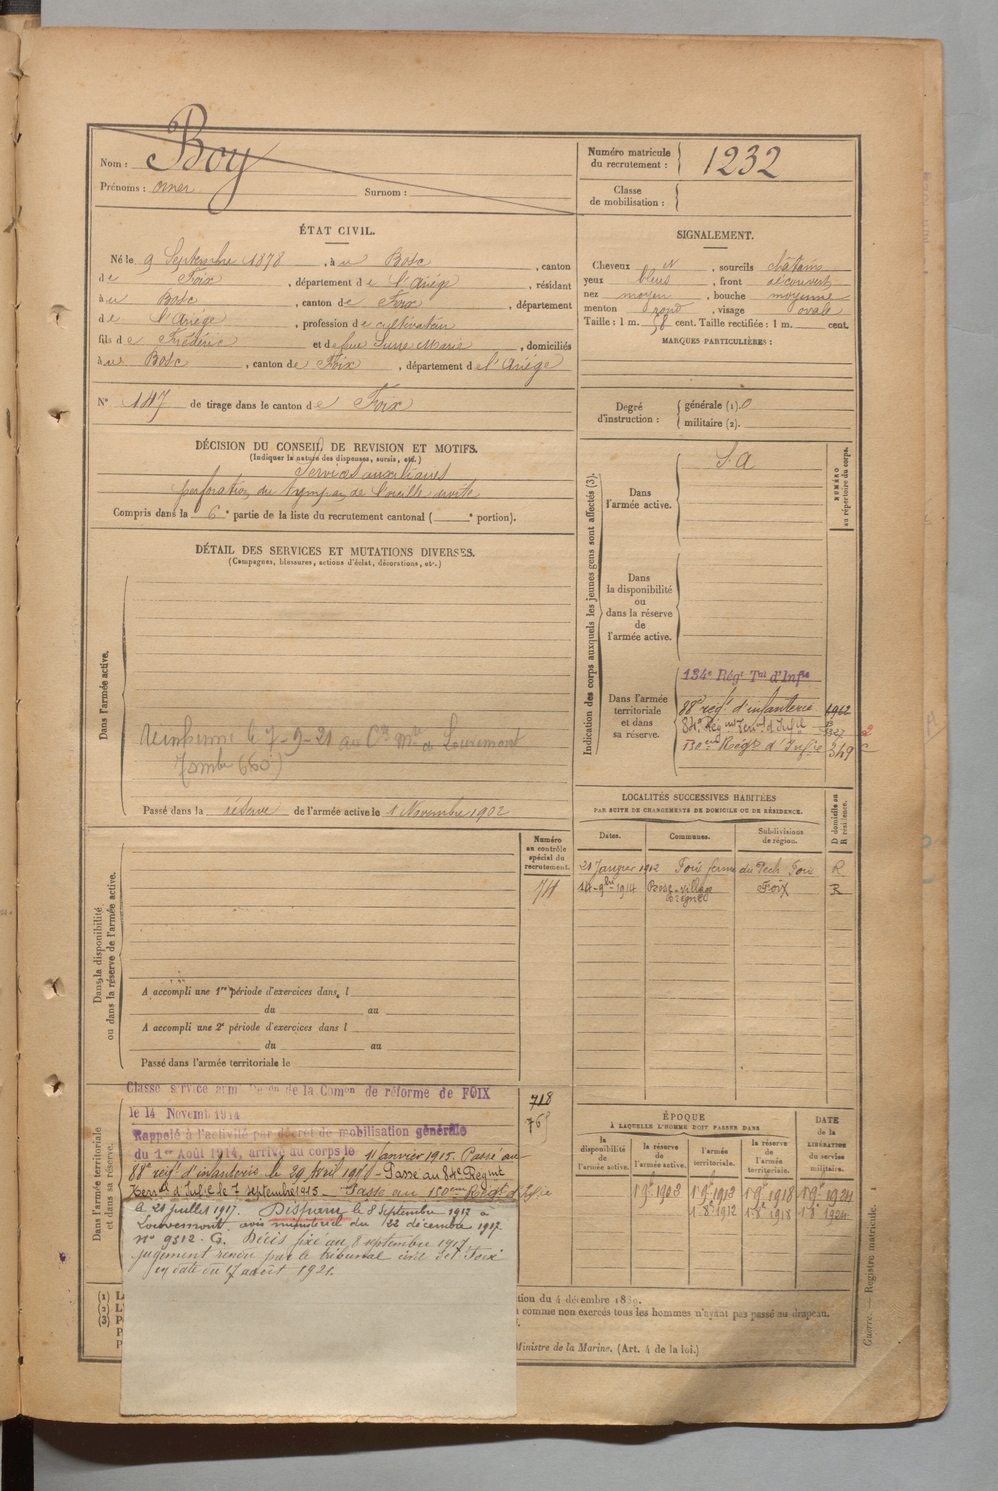 Nom : Boy
Prénoms : Omer Surnom :
Numéro matricule du recrutement : 1232
Classe de mobilisation :
ÉTAT CIVIL.
Né le 9 Septembre 1878, à u Bosc, canton
de Foix, département de l'Ariège, résidant
à u Bosc, canton de Foix, département
de l'Ariège, profession de cultivateur
fils de Frédéric et de feue Surre Marie, domiciliés
à u Bosc, canton de Foix, département de l'Ariège
N° 147 de tirage dans le canton de Foix
SIGNALEMENT.
Cheveux N, sourcils châtains
yeux bleus, front découvert
nez moyen, bouche moyenne
menton rond, visage ovale
Taille : 1 m. 58 cent. Taille rectifiée : 1 m. cent.
MARQUES PARTICULIÈRES :
Degré d'instruction : générale (1). 0
militaire (2).
DÉCISION DU CONSEIL DE REVISION ET MOTIFS.
(Indiquer la nature des dispenses, sursis, etc.)
Services auxiliaires
perforation du tympan de l'oreille droite
Compris dans la 6e partie de la liste du recrutement cantonal ( e portion).
DÉTAIL DES SERVICES ET MUTATIONS DIVERSES.
(Campagnes, blessures, actions d'éclat, décorations, etc.)
Dans l'armée active.
Réinhumé le 7-9-21 au Cre Mre de Louvemont
Tombe 660
Passé dans la réserve de l'armée active le 1 Novembre 1902
Indication des corps auxquels les jeunes gens sont affectés (3).
NUMÉRO au répertoire du corps.
Dans l'armée active.
S. A
Dans la disponibilité ou dans la réserve de l'armée active.
Dans l'armée territoriale et dans sa réserve.
134e Régt Tal d'Infie
88e rég.t d'infanterie
84e Regmt Terral d'Infie
150eme Régt d'Infie 349
LOCALITÉS SUCCESSIVES HABITÉES
PAR SUITE DE CHANGEMENTS DE DOMICILE OU DE RÉSIDENCE.
Dates. Communes. Subdivisions de région. D domicile ou R résidence.
21 Janvier 1912 Foix ferme du Pech Foix R
14-9bre 1914 Bosc-village Foix R
Dans la disponibilité ou dans la réserve de l'armée active.
Numéro au contrôle spécial du recrutement.
74
A accompli une 1re période d'exercices dans l
du au
A accompli une 2e période d'exercices dans l
du au
Passé dans l'armée territoriale le
718
768
Dans l'armée territoriale et dans sa réserve.
Classé service armé Décon de la Comon de réforme de FOIX
le 14 Novemb 1914
Rappelé à l'activité par décret de mobilisation générale
du 1er Août 1914, arrivé au corps le 11 janvier 1915. Passé au
88e rég.t d'infanterie le 29 Avril 1915 - Passé au 84e Regimt
Terral d'Infie le 7 septembre 1915 - Passé au 150eme Régt d'Infie
le 21 juillet 1917. Disparu le 8 Septembre 1917 à
Louvemont avis ministériel du 22 décembre 1917.
N° 9512-G. Décès fixé au 8 septembre 1917
jugement rendu par le tribunal civil de Foix
en date du 17 août 1921.
ÉPOQUE
À LAQUELLE L'HOMME DOIT PASSER DANS
DATE de la LIBÉRATION du service militaire.
la disponibilité de l'armée active. la réserve de l'armée active. l'armée territoriale. la réserve de l'armée territoriale.
1 9e 1903 1 9e 1913 1 9e 1918 1 9e 1924
1 8e 1912 1 8e 1918 1 8e 1924
(1)
(2)
(3)
tion du 4 décembre 1889.
comme non exercés tous les hommes n'ayant pas passé au drapeau.
Ministre de la Marine. (Art. 4 de la loi.)
Guerre. — Registre matricule. 1